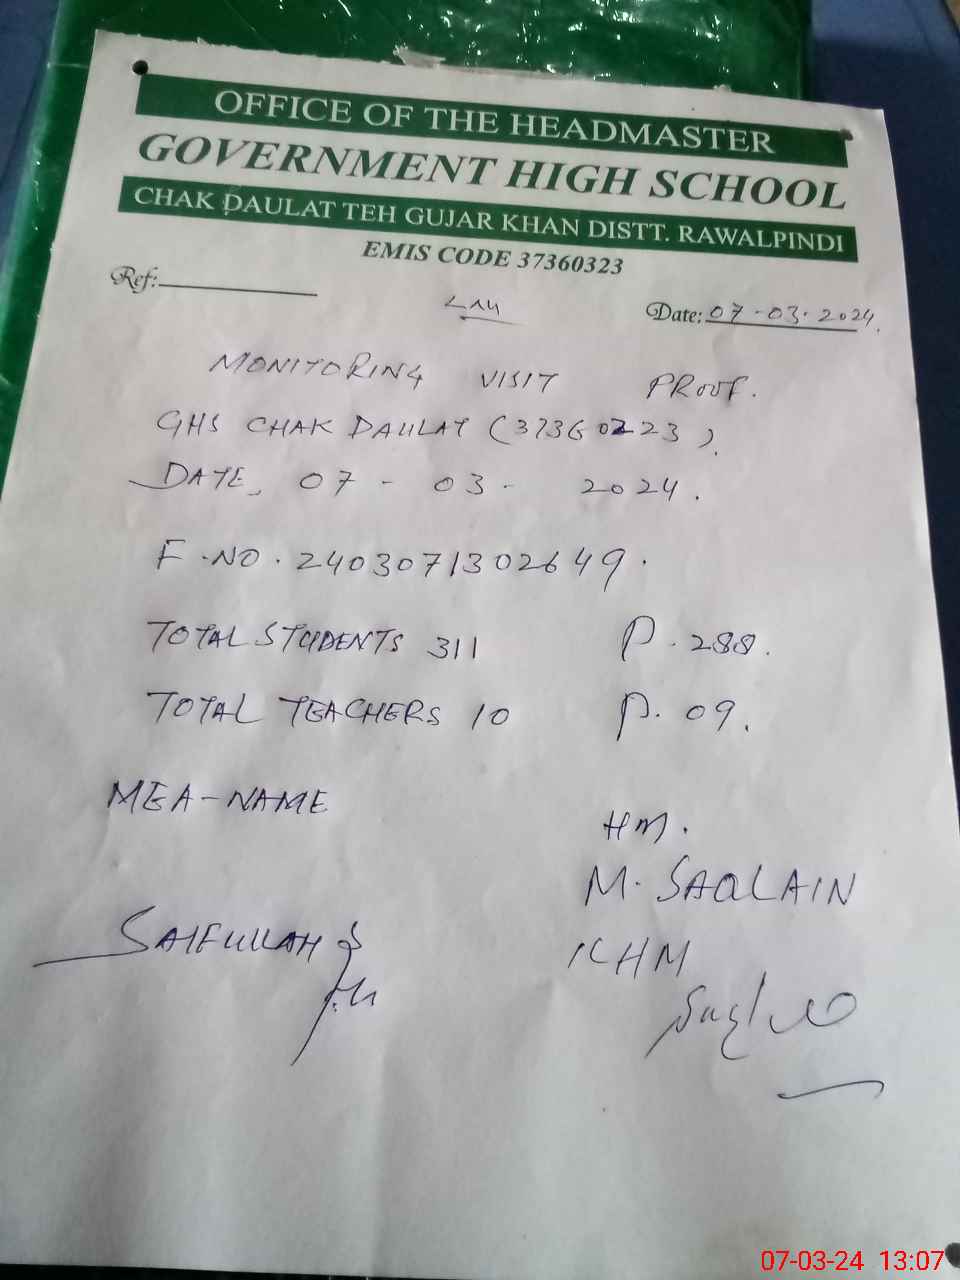 OFFICE OF THE HEADMASTER
GOVERNMENT HIGH SCHOOL
CHAK DAULAT TEH GUJAR KHAN DISTT. RAWALPINDI
EMIS CODE 37360323
Ref:
Date: 07-03-2024
MONITORING VISIT PROOF.
GHS CHAK DAULAT (37360223).
DATE. 07-03-2024.
F.NO.2403071302649.
TOTAL STUDENTS 311 P.288.
TOTAL TEACHERS 10 P.09.
MEA-NAME
HM.
M. SAQLAIN
SAIFULLAH
07-03-24 13:07